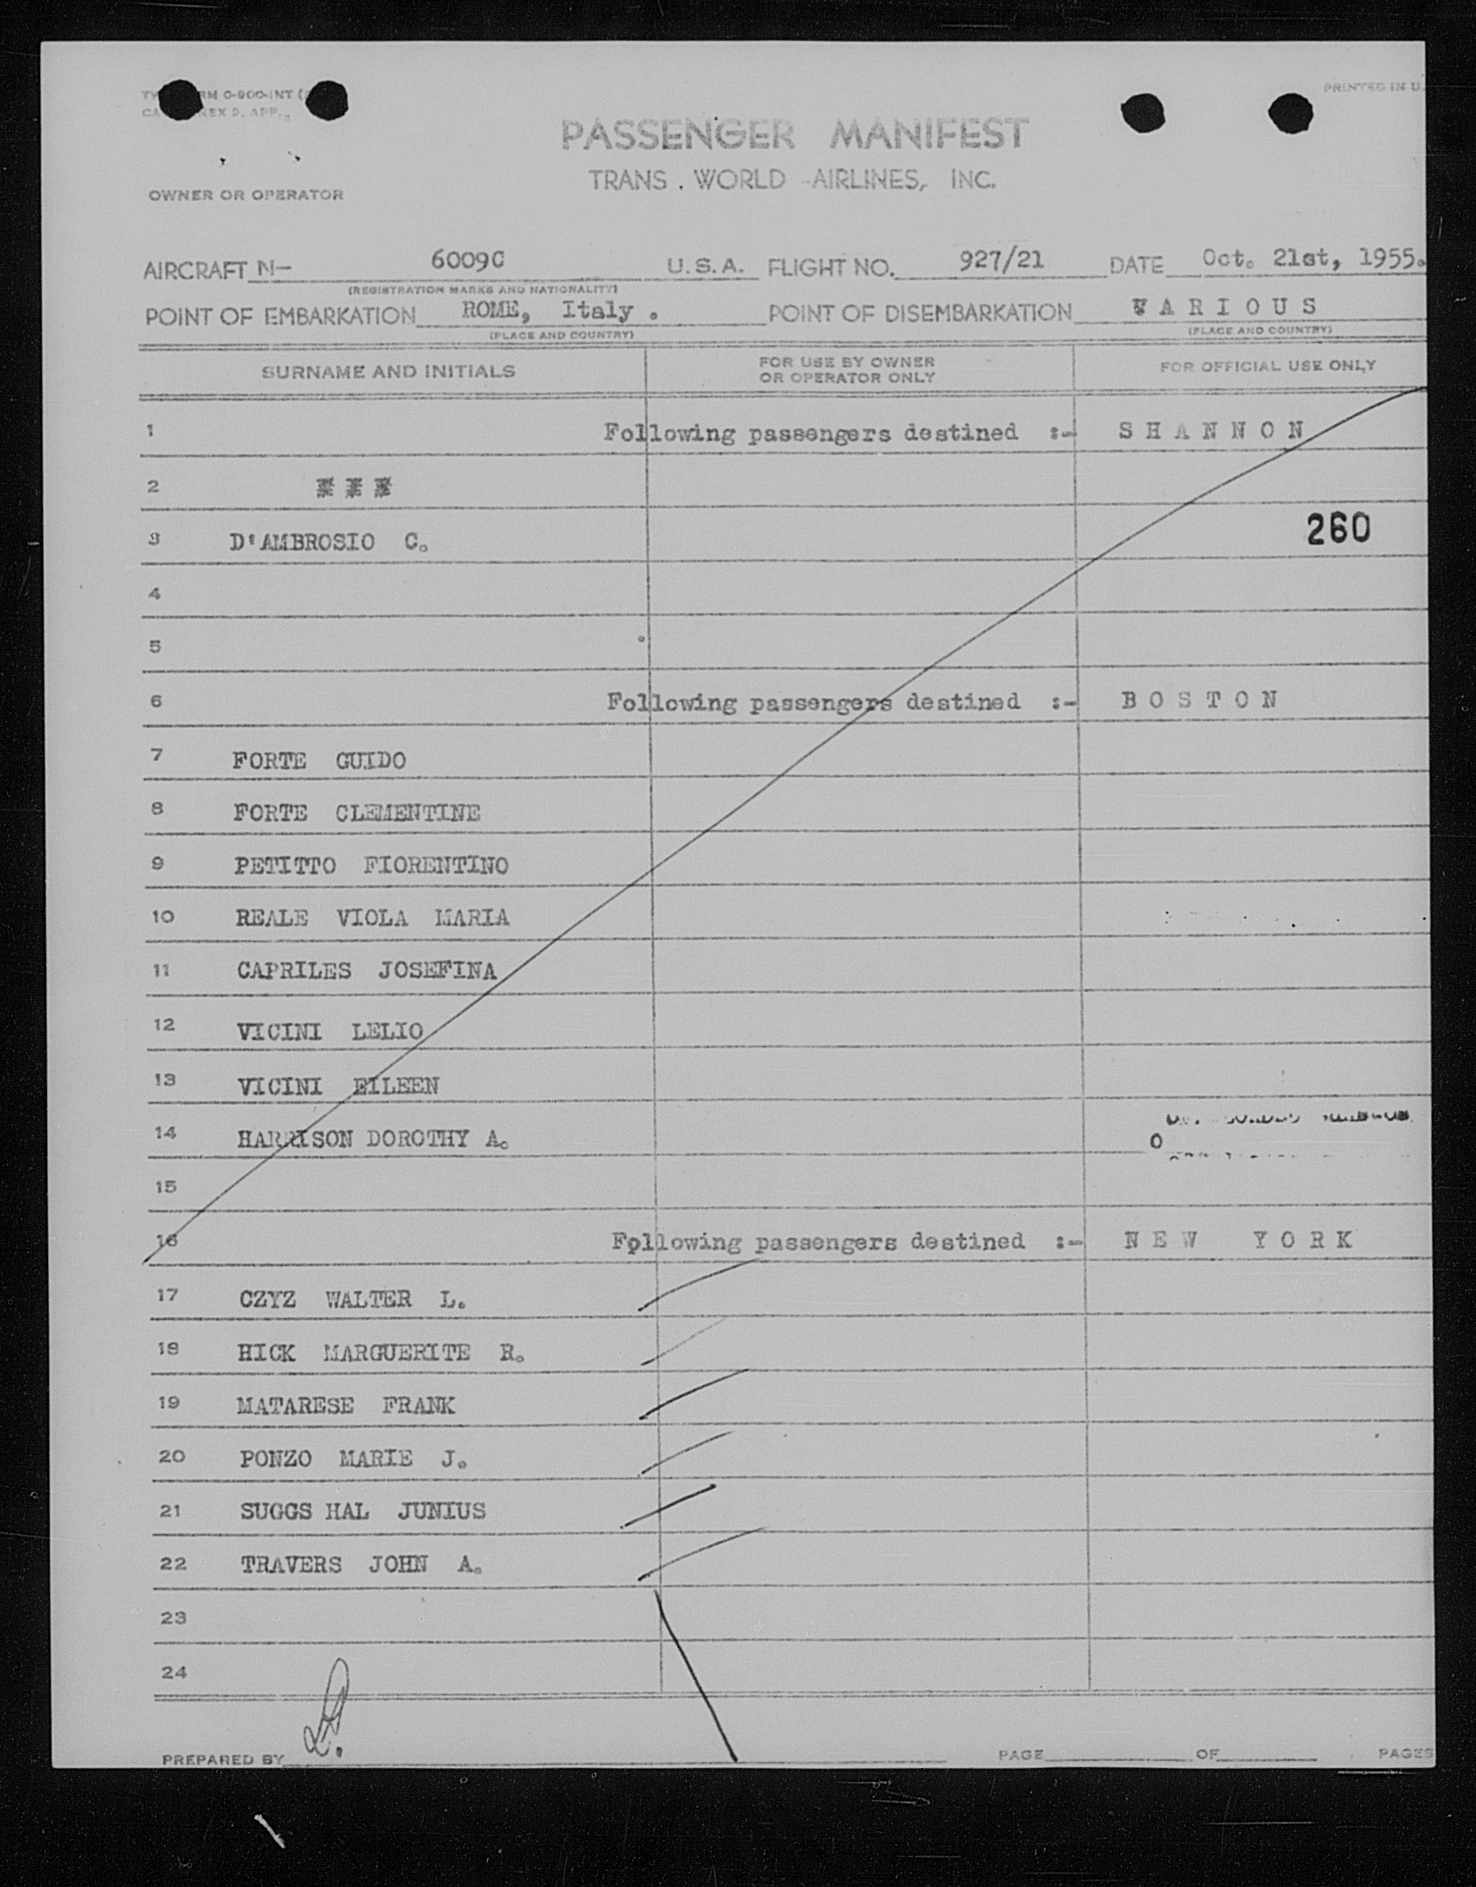 PRINTED IN U.
PASSENGER MANIFEST
TRANS WORLD AIRLINES, INC.
OWNER OR OPERATOR
AIRCRAFT N- 6009C U.S.A. FLIGHT NO. 927/21 DATE Oct. 21st, 1955.
(REGISTRATION MARKS AND NATIONALITY)
POINT OF EMBARKATION ROME, Italy . POINT OF DISEMBARKATION VARIOUS
(PLACE AND COUNTRY) (PLACE AND COUNTRY)
SURNAME AND INITIALS FOR USE BY OWNER OR OPERATOR ONLY FOR OFFICIAL USE ONLY
1 Following passengers destined :- SHANNON
2
3 D'AMBROSIO C. 260
4
5
6 Following passengers destined :- BOSTON
7 FORTE GUIDO
8 FORTE CLEMENTINE
9 PETITTO FIORENTINO
10 REALE VIOLA MARIA
11 CAPRILES JOSEFINA
12 VICINI LELIO
13 VICINI EILEEN
14 HARRISON DOROTHY A.
15
16 Following passengers destined :- NEW YORK
17 CZYZ WALTER L.
18 HICK MARGUERITE R.
19 MATARESE FRANK
20 PONZO MARIE J.
21 SUGGS HAL JUNIUS
22 TRAVERS JOHN A.
23
24
PREPARED BY PAGE OF PAGES